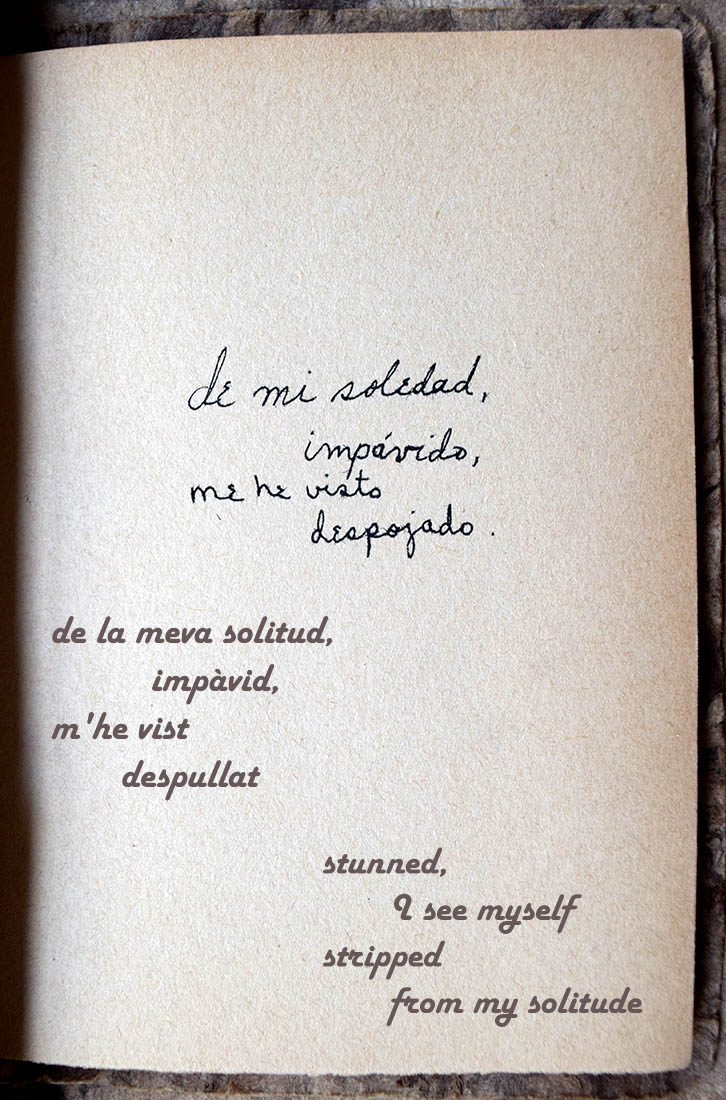 de mi soledad,
impávido,
me he visto
despojado.
de la meva solitud,
impàvid,
m'he vist
despullat
stunned,
I see myself
stripped
from my solitude